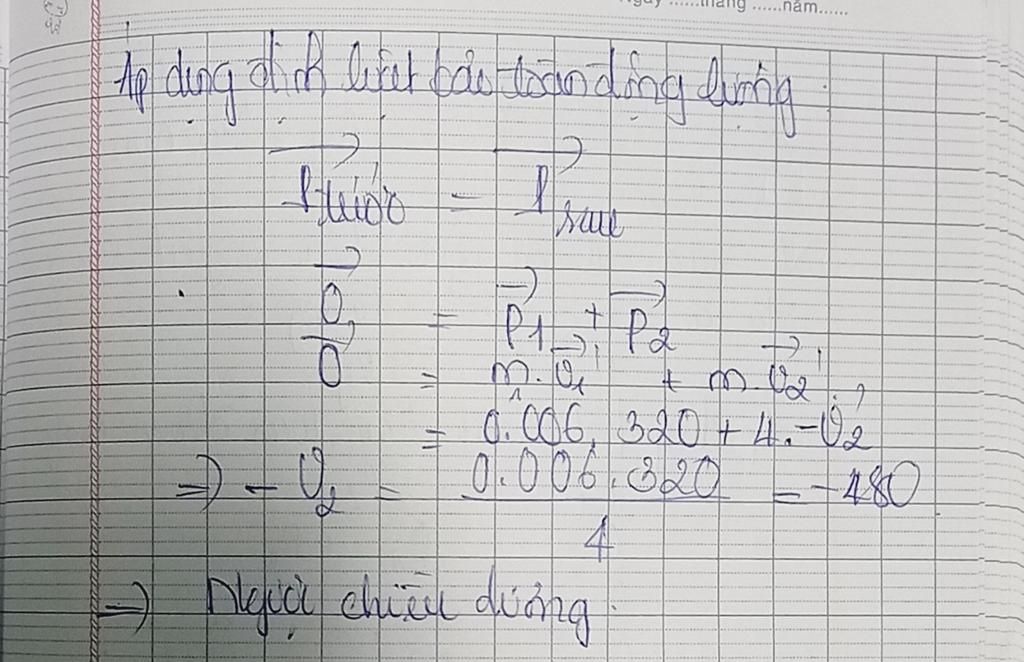 Ngày ......tháng ......năm......
Áp dụng định luật bảo toàn động lượng
P⃗ trước = P⃗ sau
0⃗ = P⃗1 + P⃗2
0 = m1.v⃗1 + m.v⃗2
= 0.006.320 + 4.-v2
⇒ -v2 = 0.006.320 / 4 = -480
⇒ Ngược chiều dương.